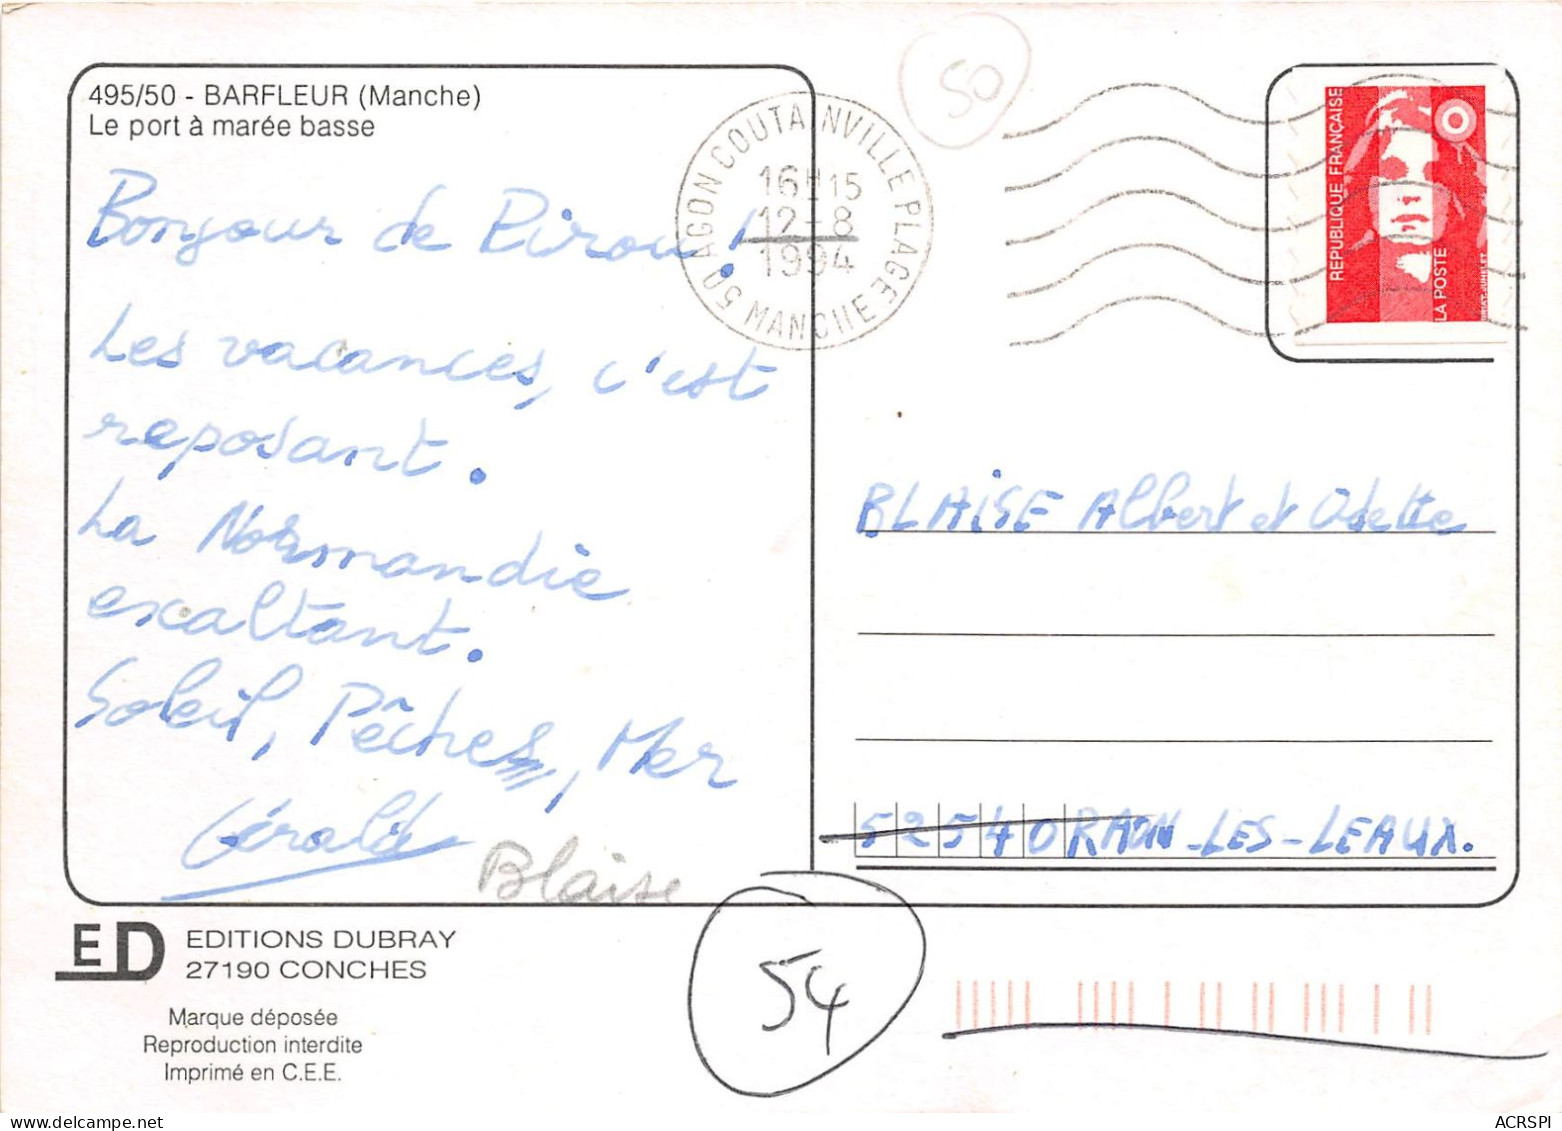 495/50 - BARFLEUR (Manche)
Le port à marée basse
Bonjour de Pirou !
Les vacances, c'est
reposant.
La Normandie
exaltant.
Soleil, Pêches, Mer
Gérald
Blaise
ED
EDITIONS DUBRAY
27190 CONCHES
Marque déposée
Reproduction interdite
Imprimé en C.E.E.
50
50 AGON COUTAINVILLE PLAGE MANCHE
16H15
12-8
1994
REPUBLIQUE FRANÇAISE
LA POSTE
BLAISE Albert et Odette
52540 RAON-LES-LEAUX.
54
ACRSPI